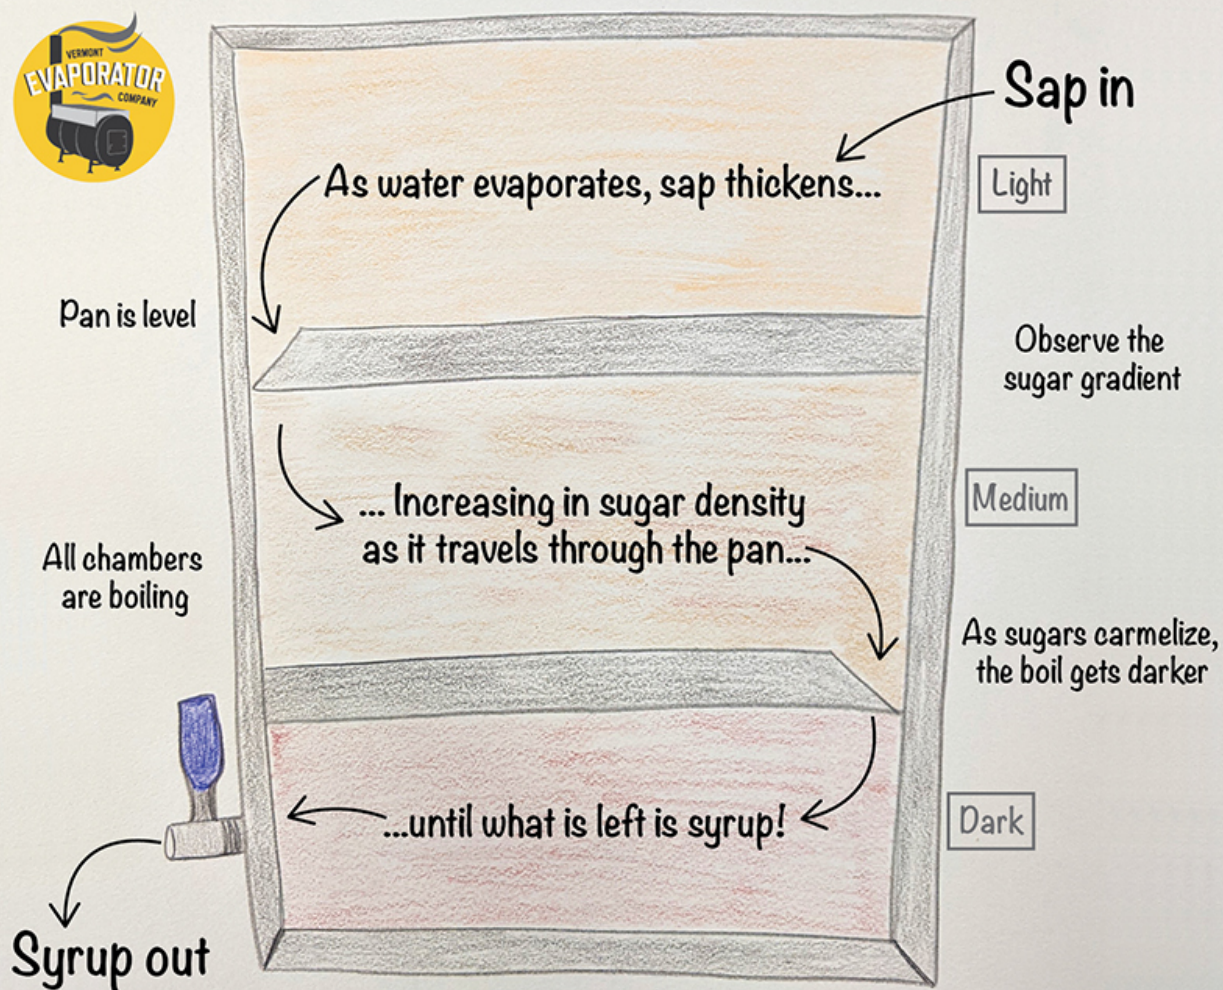 VERMONT
EVAPORATOR
COMPANY
Sap in
As water evaporates, sap thickens...
Light
Pan is level
Observe the
sugar gradient
... Increasing in sugar density
as it travels through the pan...
Medium
All chambers
are boiling
As sugars carmelize,
the boil gets darker
...until what is left is syrup!
Dark
Syrup out